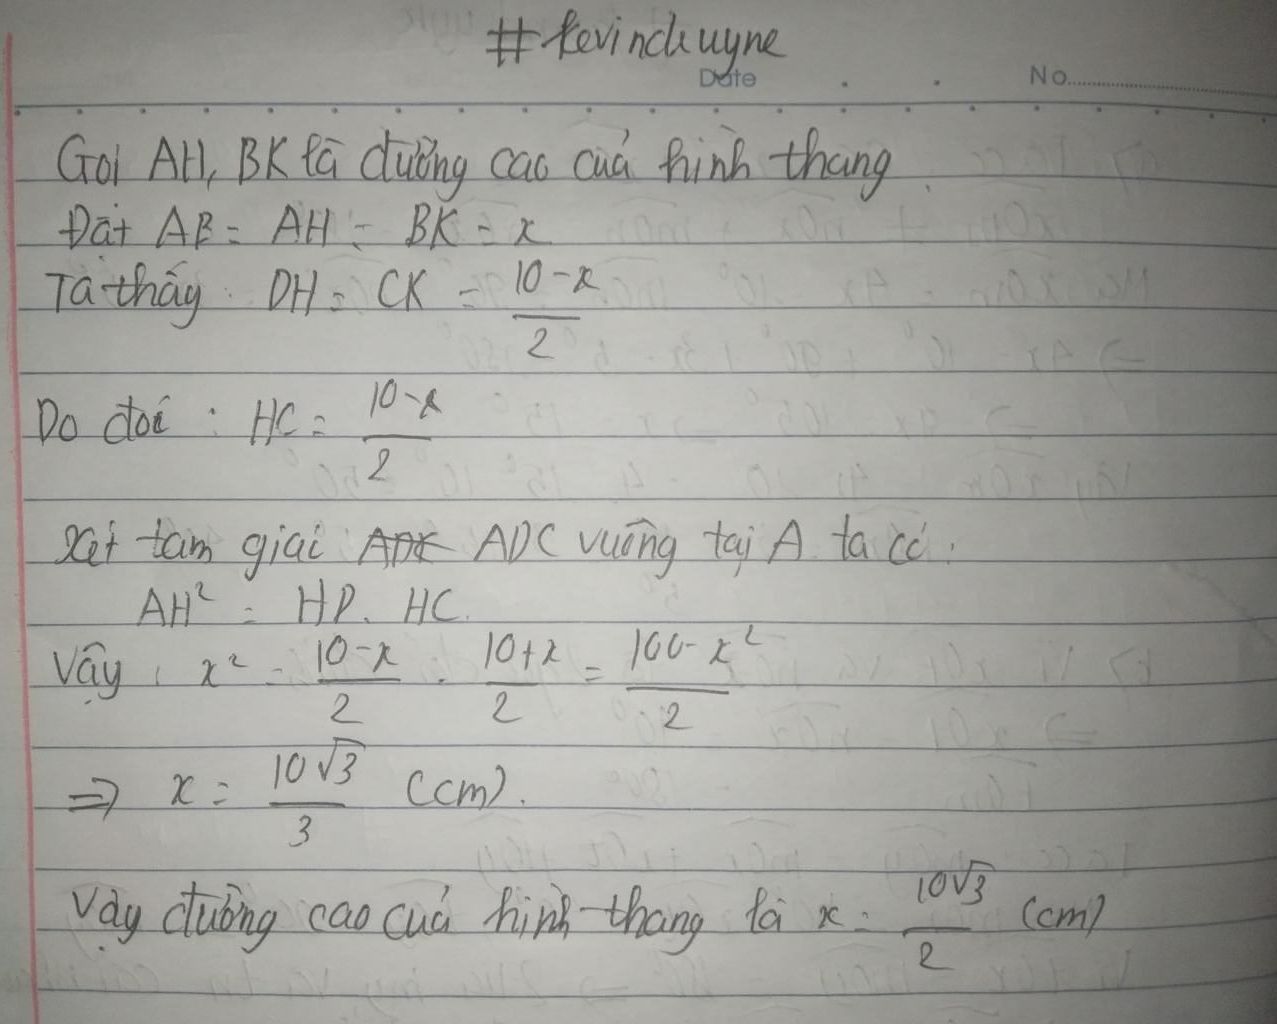 #kevinchuyne
Date No
Gọi AH, BK là đường cao của hình thang.
Đặt AB = AH = BK = x
Ta thấy: DH = CK = 10-x/2
Do đó: HC = 10-x/2
Xét tam giác ADC vuông tại A ta có:
AH² = HD. HC.
Vậy: x² = 10-x/2 . 10+x/2 = 100-x²/2
=> x = 10√3/3 (cm).
Vậy đường cao của hình thang là x = 10√3/2 (cm)